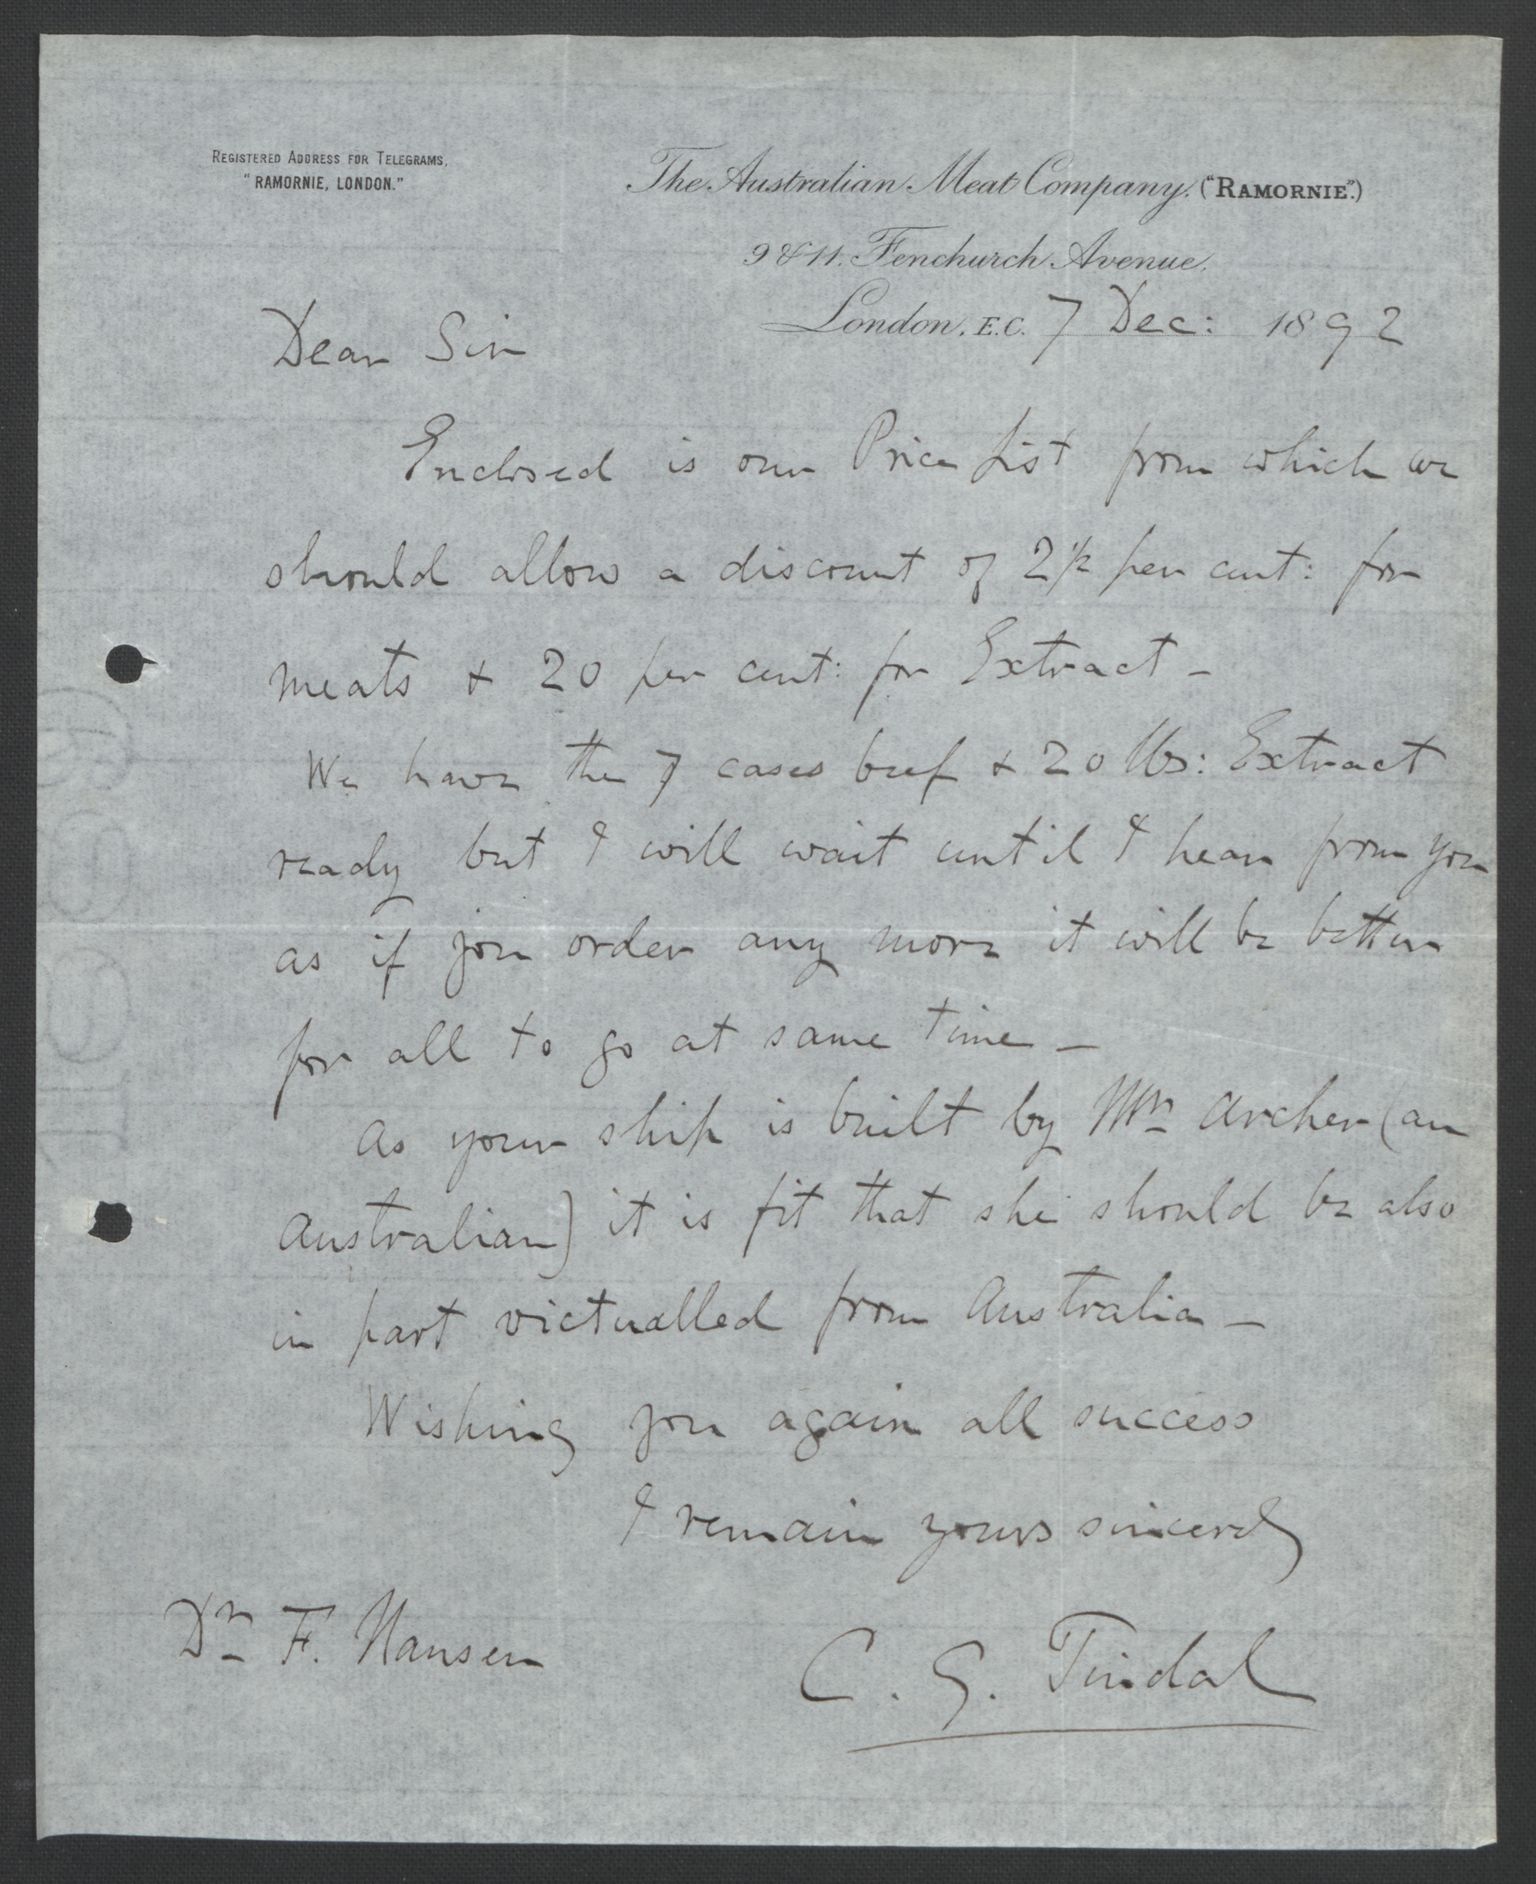 REGISTERED ADDRESS FOR TELEGRAMS,
"RAMORNIE, LONDON."
The Australian Meat Company. ("RAMORNIE".)
9 & 11. Fenchurch Avenue.
London, E.C. 7 Dec: 1892
Dear Sir
Enclosed is our Price List from which we
should allow a discount of 2½ per cent: for
meats & 20 per cent: for Extract -
We have the 7 cases beef & 20 lbs: Extract
ready but I will wait until I hear from you
as if you order any more it will be better
for all to go at same time -
As your ship is built by Mr Archer (an
Australian) it is fit that she should be also
in part victualled from Australia -
Wishing you again all success
I remain yours sincerely
Dr F. Nansen
C. G. Tindal